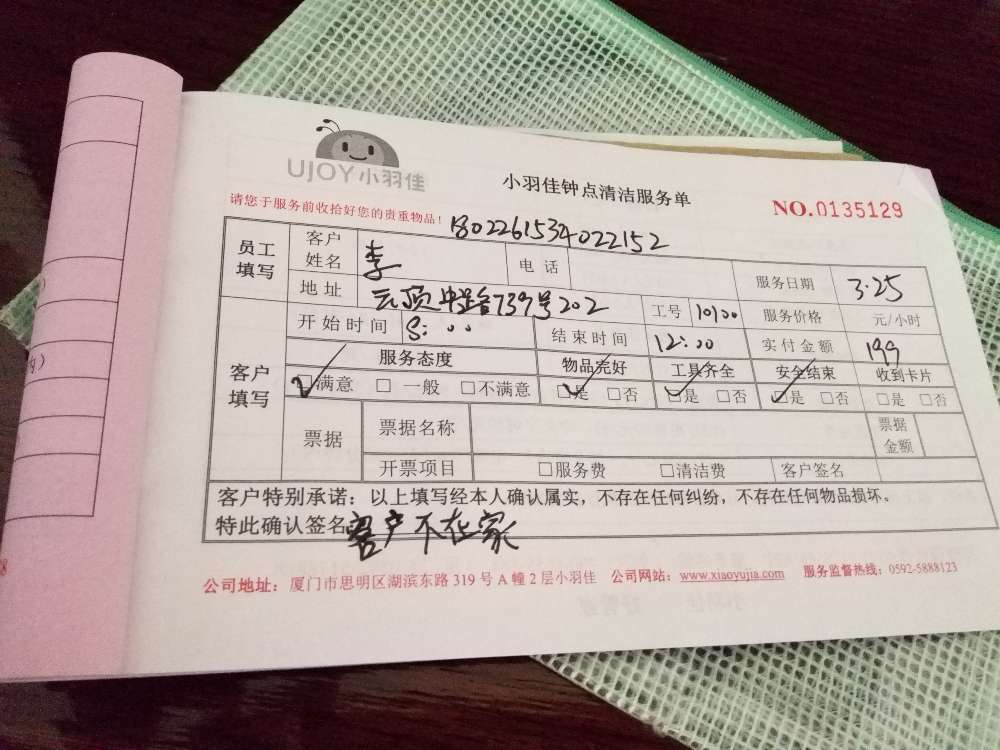 UJOY小羽佳
小羽佳钟点清洁服务单
NO.0135129
请您于服务前收拾好您的贵重物品！
1802261534022152
员工填写 客户姓名 李 电话 服务日期 3.25
地址 云顶中路739号202 工号 10100 服务价格 元/小时
客户填写 开始时间 8:00 结束时间 12:00 实付金额 199
服务态度 物品完好 工具齐全 安全结束 收到卡片
☑满意 □一般 □不满意 ☑是 □否 ☑是 □否 ☑是 □否 □是 □否
票据 票据名称 票据金额
开票项目 □服务费 □清洁费 客户签名
客户特别承诺：以上填写经本人确认属实，不存在任何纠纷，不存在任何物品损坏。
特此确认签名 客户不在家
公司地址：厦门市思明区湖滨东路319号A幢2层小羽佳 公司网站：www.xiaoyujia.com 服务监督热线：0592-5888123